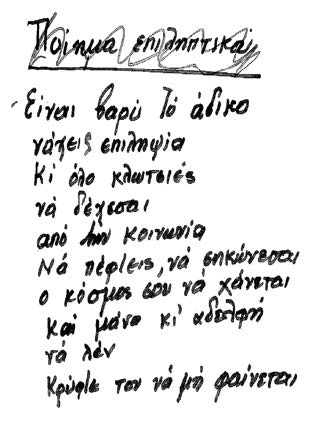 Ποίημα επιληπτικά
Είναι βαρύ τό άδικο
νάχεις επιληψία
Κι όλο κλωτσιές
νά δέχεσαι
από την κοινωνία
Νά πέφτεις, νά σηκώνεσαι
ο κόσμος σου νά χάνεται
καί μάνα κι' αδελφή
νά λέν
Κρύψε τον νά μή φαίνεται